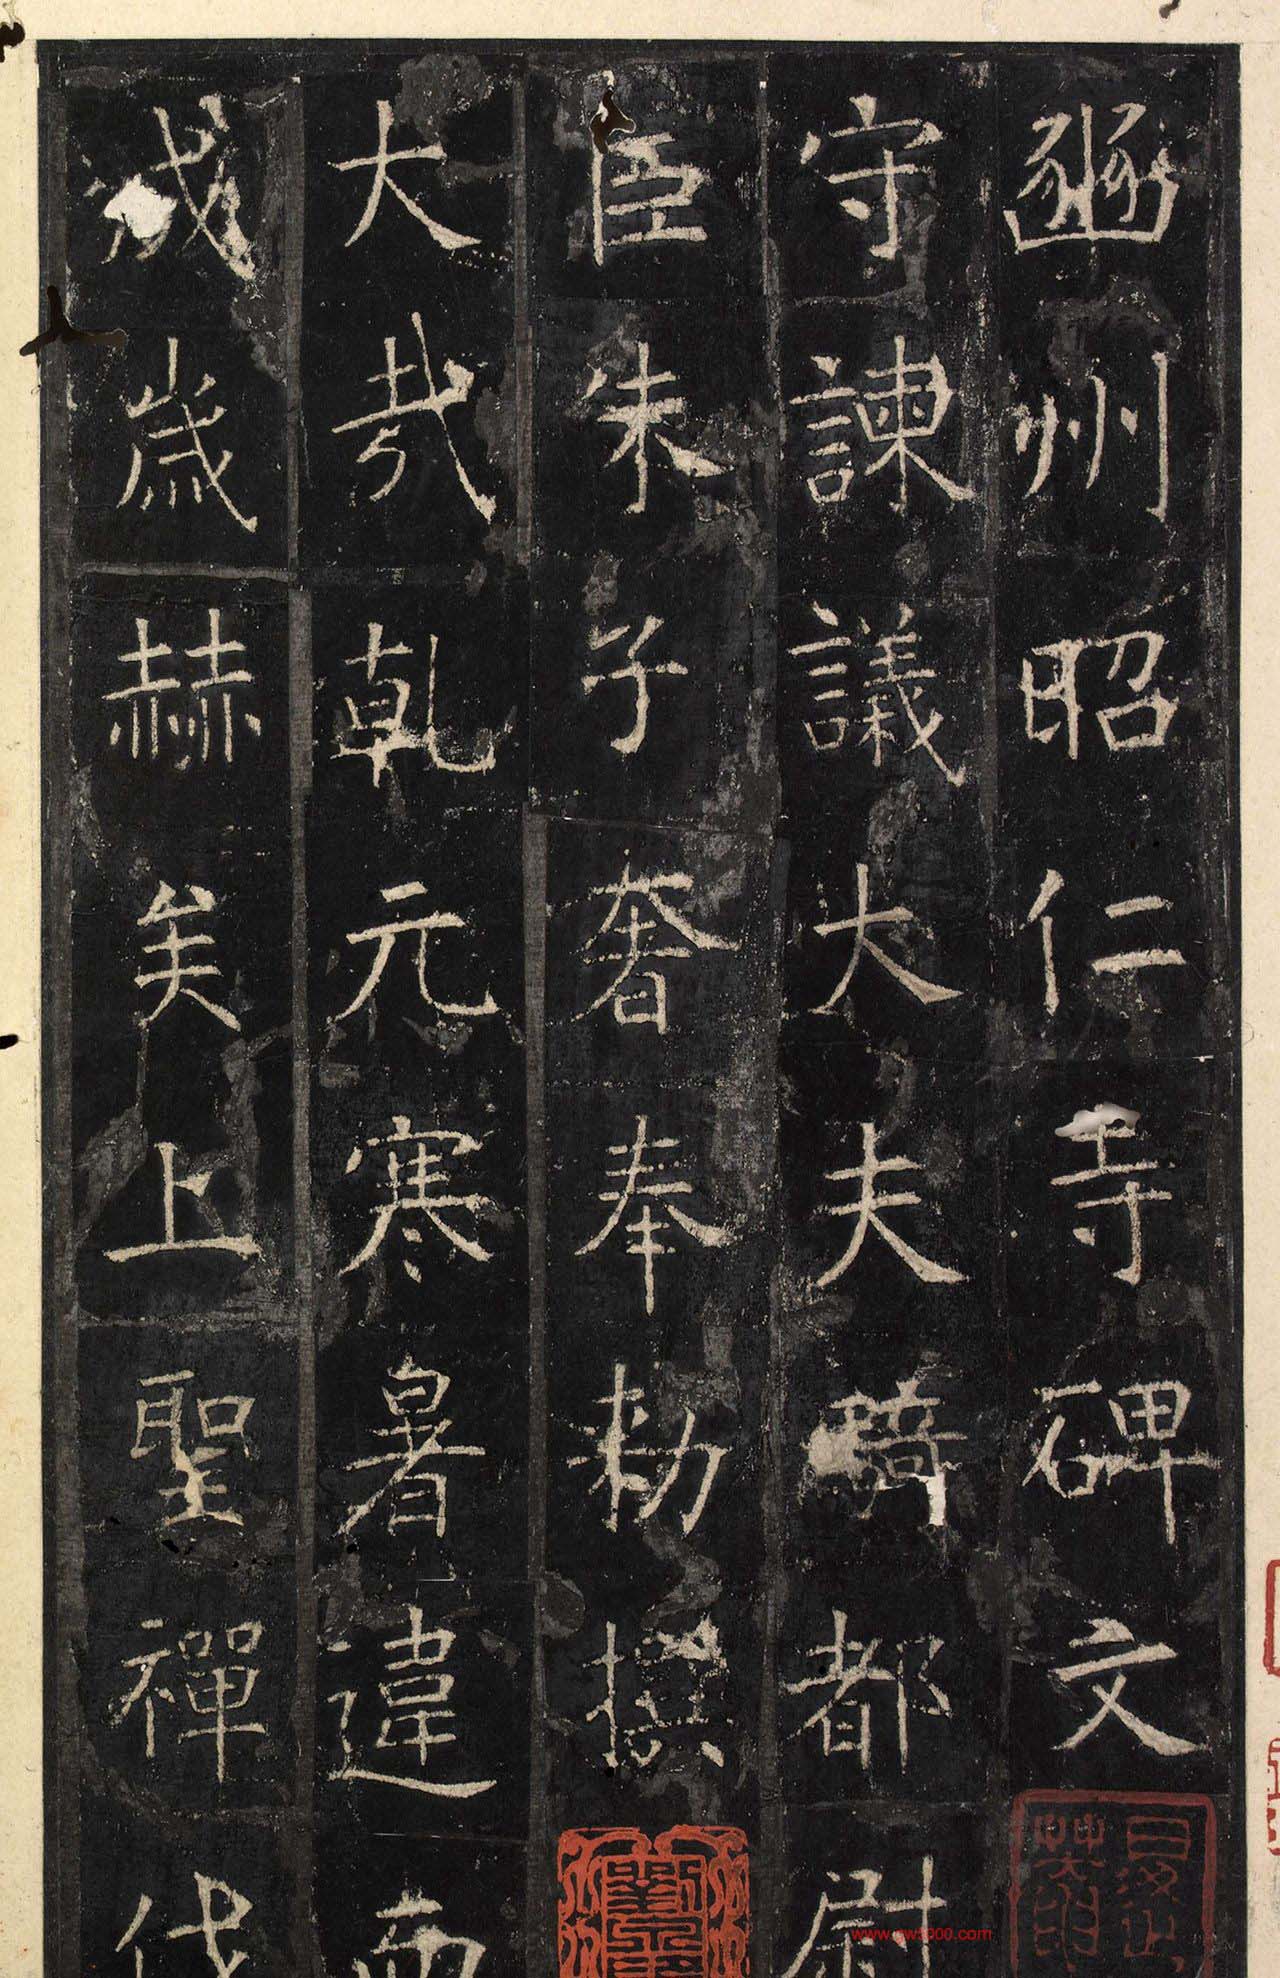 豳州昭仁寺碑文
守諫議大夫騎都尉
臣朱子奢奉勅撰
大哉乾元寒暑違而
成歲赫矣上聖禪代